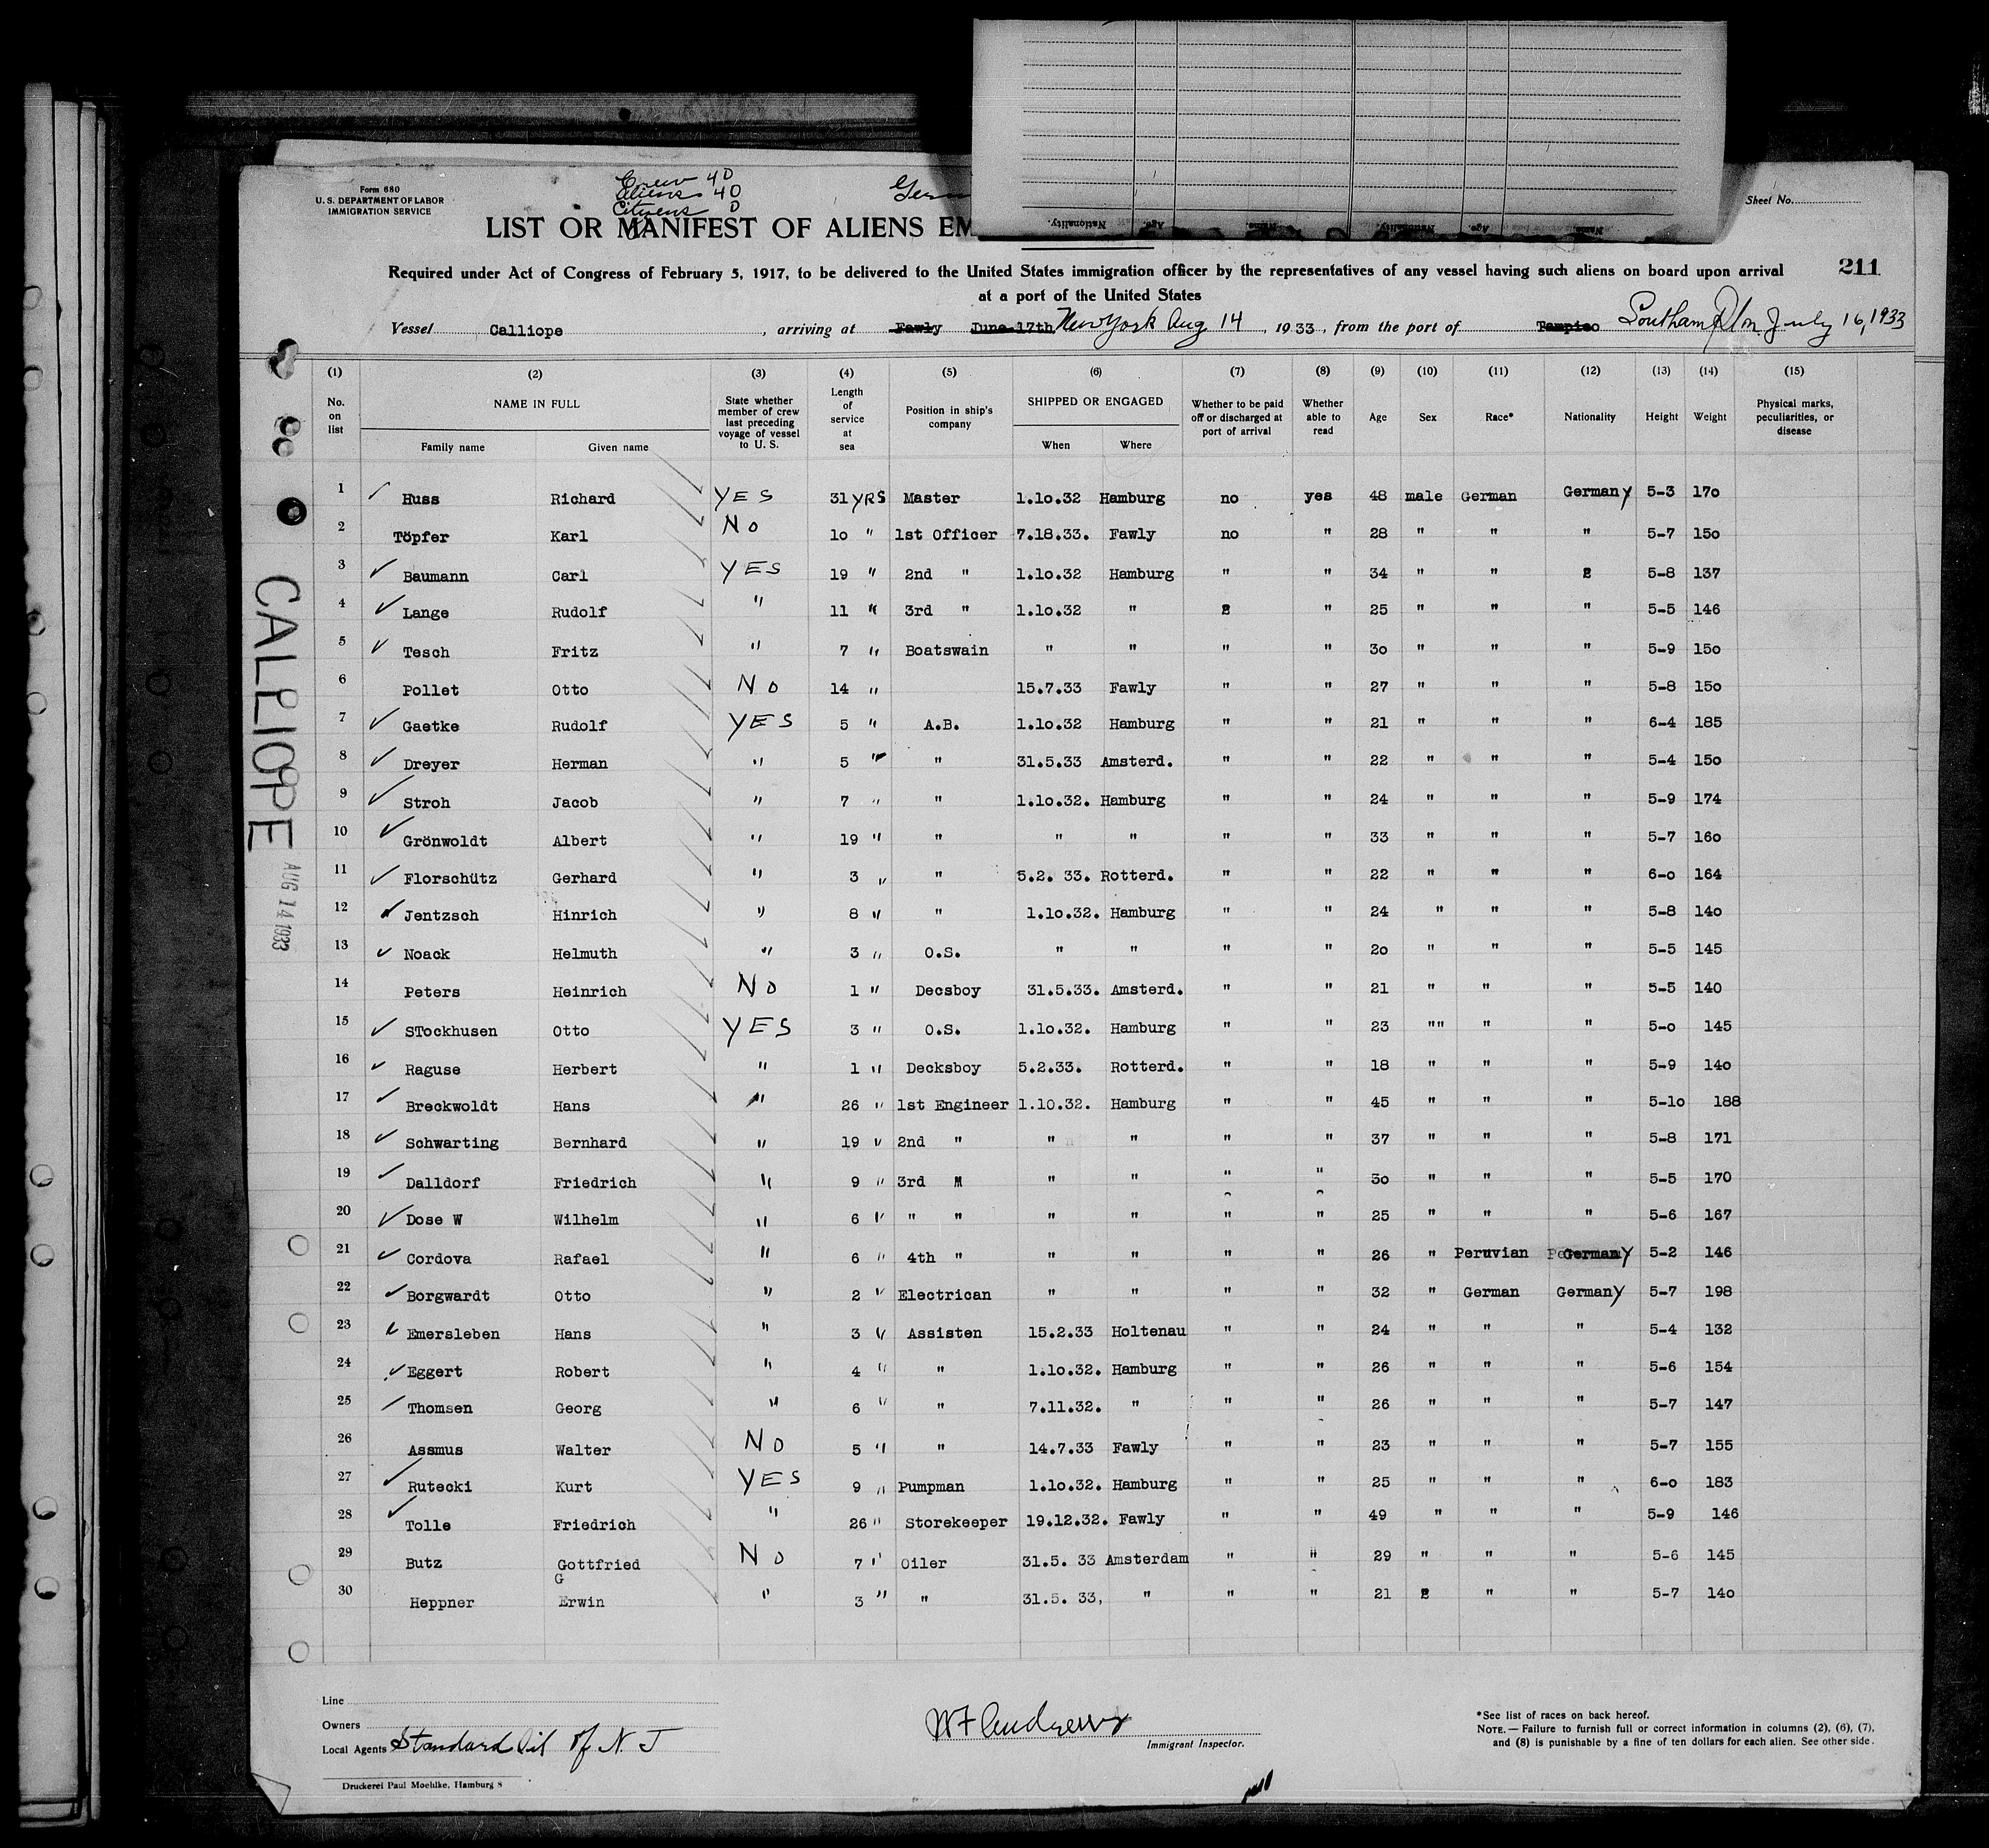 Form 680
U. S. DEPARTMENT OF LABOR
IMMIGRATION SERVICE
Crew 40
Aliens 40
Citizens 0
Sheet No.
Nationality. Age. Name. Nationality. Age. Name.
LIST OR MANIFEST OF ALIENS EM
Required under Act of Congress of February 5, 1917, to be delivered to the United States immigration officer by the representatives of any vessel having such aliens on board upon arrival
211
at a port of the United States
Vessel Calliope, arriving at Fawly June 17th New York Aug 14, 1933, from the port of Tampico Southampton July 16, 1933
(1) (2) (3) (4) (5) (6) (7) (8) (9) (10) (11) (12) (13) (14) (15)
No. on list NAME IN FULL Family name Given name State whether member of crew last preceding voyage of vessel to U. S. Length of service at sea Position in ship's company SHIPPED OR ENGAGED When Where Whether to be paid off or discharged at port of arrival Whether able to read Age Sex Race* Nationality Height Weight Physical marks, peculiarities, or disease
1 Huss Richard YES 31 YRS Master 1.10.32 Hamburg no yes 48 male German Germany 5-3 170
2 Töpfer Karl NO 10 " 1st Officer 7.18.33. Fawly no " 28 " " " 5-7 150
3 Baumann Carl YES 19 " 2nd " 1.10.32 Hamburg " " 34 " " " 5-8 137
4 Lange Rudolf " 11 " 3rd " 1.10.32 " " " 25 " " " 5-5 146
5 Tesch Fritz " 7 " Boatswain " " " " 30 " " " 5-9 150
6 Pollet Otto NO 14 " 15.7.33 Fawly " " 27 " " " 5-8 150
7 Gaetke Rudolf YES 5 " A.B. 1.10.32 Hamburg " " 21 " " " 6-4 185
8 Dreyer Herman " 5 " " 31.5.33 Amsterd. " " 22 " " " 5-4 150
9 Stroh Jacob " 7 " " 1.10.32. Hamburg " " 24 " " " 5-9 174
10 Grönwoldt Albert " 19 " " " " " " 33 " " " 5-7 160
11 Florschütz Gerhard " 3 " " 5.2. 33. Rotterd. " " 22 " " " 6-0 164
12 Jentzsch Hinrich " 8 " " 1.10.32. Hamburg " " 24 " " " 5-8 140
13 Noack Helmuth " 3 " O.S. " " " " 20 " " " 5-5 145
14 Peters Heinrich NO 1 " Decsboy 31.5.33. Amsterd. " " 21 " " " 5-5 140
15 STockhusen Otto YES 3 " O.S. 1.10.32. Hamburg " " 23 "" " " 5-0 145
16 Raguse Herbert " 1 " Decksboy 5.2.33. Rotterd. " " 18 " " " 5-9 140
17 Breckwoldt Hans " 26 " 1st Engineer 1.10.32. Hamburg " " 45 " " " 5-10 188
18 Schwarting Bernhard " 19 " 2nd " " " " " 37 " " " 5-8 171
19 Dalldorf Friedrich " 9 " 3rd " " " " " 30 " " " 5-5 170
20 Dose W Wilhelm " 6 " " " " " " " 25 " " " 5-6 167
21 Cordova Rafael " 6 " 4th " " " " " 26 " Peruvian Germany 5-2 146
22 Borgwardt Otto " 2 " Electrican " " " " 32 " German Germany 5-7 198
23 Emersleben Hans " 3 " Assisten 15.2.33 Holtenau " " 24 " " " 5-4 132
24 Eggert Robert " 4 " " 1.10.32. Hamburg " " 26 " " " 5-6 154
25 Thomsen Georg " 6 " " 7.11.32. " " " 26 " " " 5-7 147
26 Assmus Walter NO 5 " " 14.7.33 Fawly " " 23 " " " 5-7 155
27 Rutecki Kurt YES 9 " Pumpman 1.10.32. Hamburg " " 25 " " " 6-0 183
28 Tolle Friedrich " 26 " Storekeeper 19.12.32. Fawly " " 49 " " " 5-9 146
29 Butz Gottfried NO 7 " Oiler 31.5. 33 Amsterdam " " 29 " " " 5-6 145
G
30 Heppner Erwin " 3 " " 31.5. 33, " " " 21 " " " 5-7 140
CALLIOPE
AUG 14 1933
Line
Owners
Local Agents Standard Oil of N J
WF Andrews
Immigrant Inspector.
*See list of races on back hereof.
NOTE.—Failure to furnish full or correct information in columns (2), (6), (7),
and (8) is punishable by a fine of ten dollars for each alien. See other side.
Druckerei Paul Moehlke, Hamburg 8